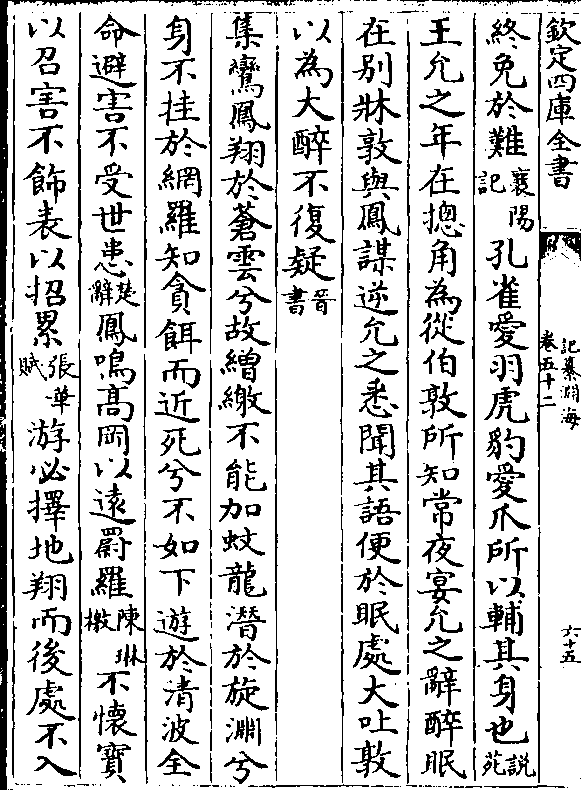 欽定四庫全書
記纂淵海
卷五十二
六十五
終免於難襄陽記孔雀愛羽虎豹愛爪所以輔其身也說苑
王允之年在摠角為從伯敦所知常夜宴允之辭醉眠
在别牀敦與鳳謀逆允之悉聞其語便於眠處大吐敦
以為大醉不復疑晉書
集鸞鳳翔於蒼雲兮故繒繳不能加蛟龍潛於旋淵兮
身不挂於網羅知貪餌而近死兮不如下遊於清波全
命避害不受世患楚辭鳳鳴高岡以遠罻羅陳琳檄不懷寶
以召害不飾表以招累張華賦游必擇地翔而後處不入